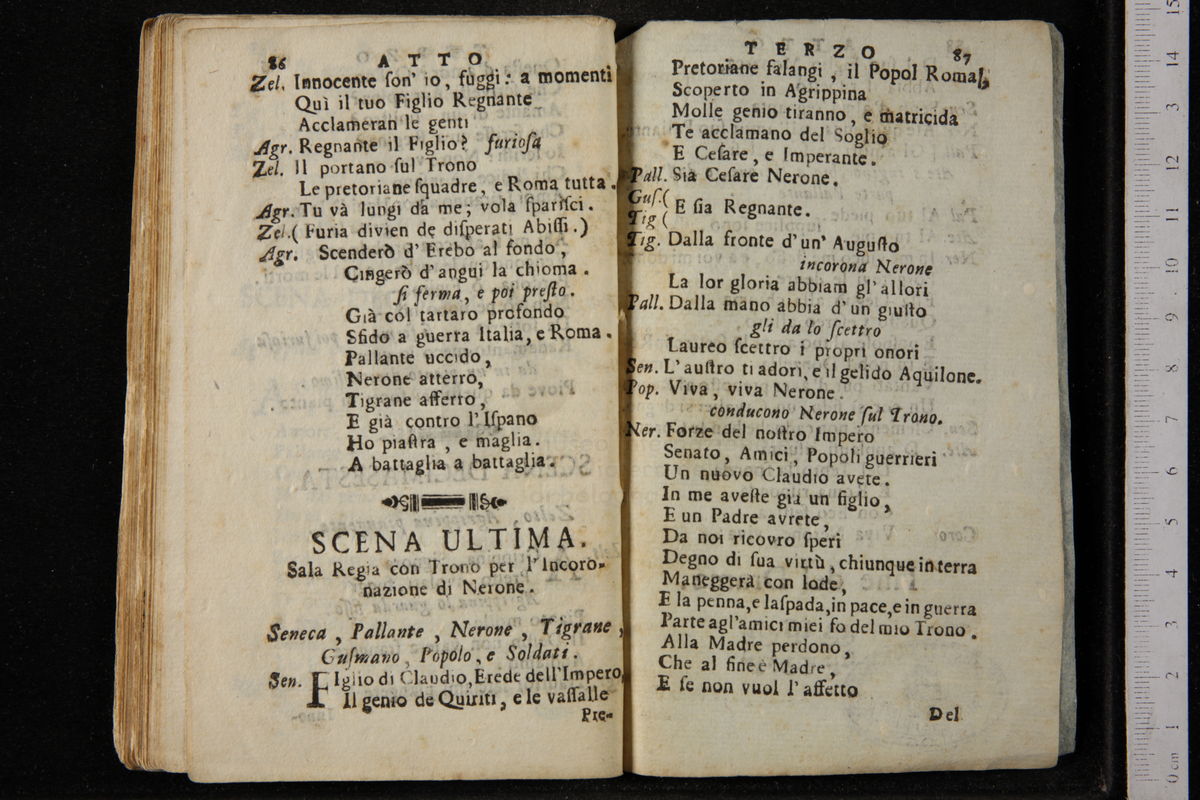 86 ATTO
Zel. Innocente ſon' io, fuggi: a momenti
Quì il tuo Figlio Regnante
Acclameran le genti
Agr. Regnante il Figlio? furioſa
Zel. Il portano ſul Trono
Le pretoriane ſquadre, e Roma tutta.
Agr. Tu và lungi da me; vola ſpariſci.
Zel. (Furia divien de diſperati Abiſſi.)
Agr. Scenderò d' Erebo al fondo,
Cingerò d' angui la chioma.
ſi ferma, e poi preſto.
Già col tartaro profondo
Sfido a guerra Italia, e Roma.
Pallante uccido,
Nerone atterro,
Tigrane afferro,
E già contro l'Iſpano
Ho piaſtra, e maglia.
A battaglia a battaglia.
SCENA ULTIMA.
Sala Regia con Trono per l'Incoro-
nazione di Nerone.
Seneca, Pallante, Nerone, Tigrane,
Guſmano, Popolo, e Soldati.
Sen. FIglio di Claudio, Erede dell'Impero,
Il genio de Quiriti, e le vaſſalle
Pre-
TERZO 87
Pretoriane falangi, il Popol Roma,
Scoperto in Agrippina
Molle genio tiranno, e matricida
Te acclamano del Soglio
E Ceſare, e Imperante.
Pall. Sia Ceſare Nerone.
Guſ. (
Tig (
E ſia Regnante.
Tig. Dalla fronte d'un' Auguſto
incorona Nerone
La lor gloria abbiam gl' allori
Pall. Dalla mano abbia d' un giuſto
gli da lo ſcettro
Laureo ſcettro i propri onori
Sen. L' auſtro ti adori, e il gelido Aquilone.
Pop. Viva, viva Nerone.
conducono Nerone ſul Trono.
Ner. Forze del noſtro Impero
Senato, Amici, Popoli guerrieri
Un nuovo Claudio avete.
In me aveſte gia un figlio,
E un Padre avrete,
Da noi ricovro ſperi
Degno di ſua virtù, chiunque in terra
Maneggerà con lode,
E la penna, e la ſpada, in pace, e in guerra
Parte agl'amici miei fo del mio Trono.
Alla Madre perdono,
Che al fine è Madre,
E ſe non vuol l'affetto
Del